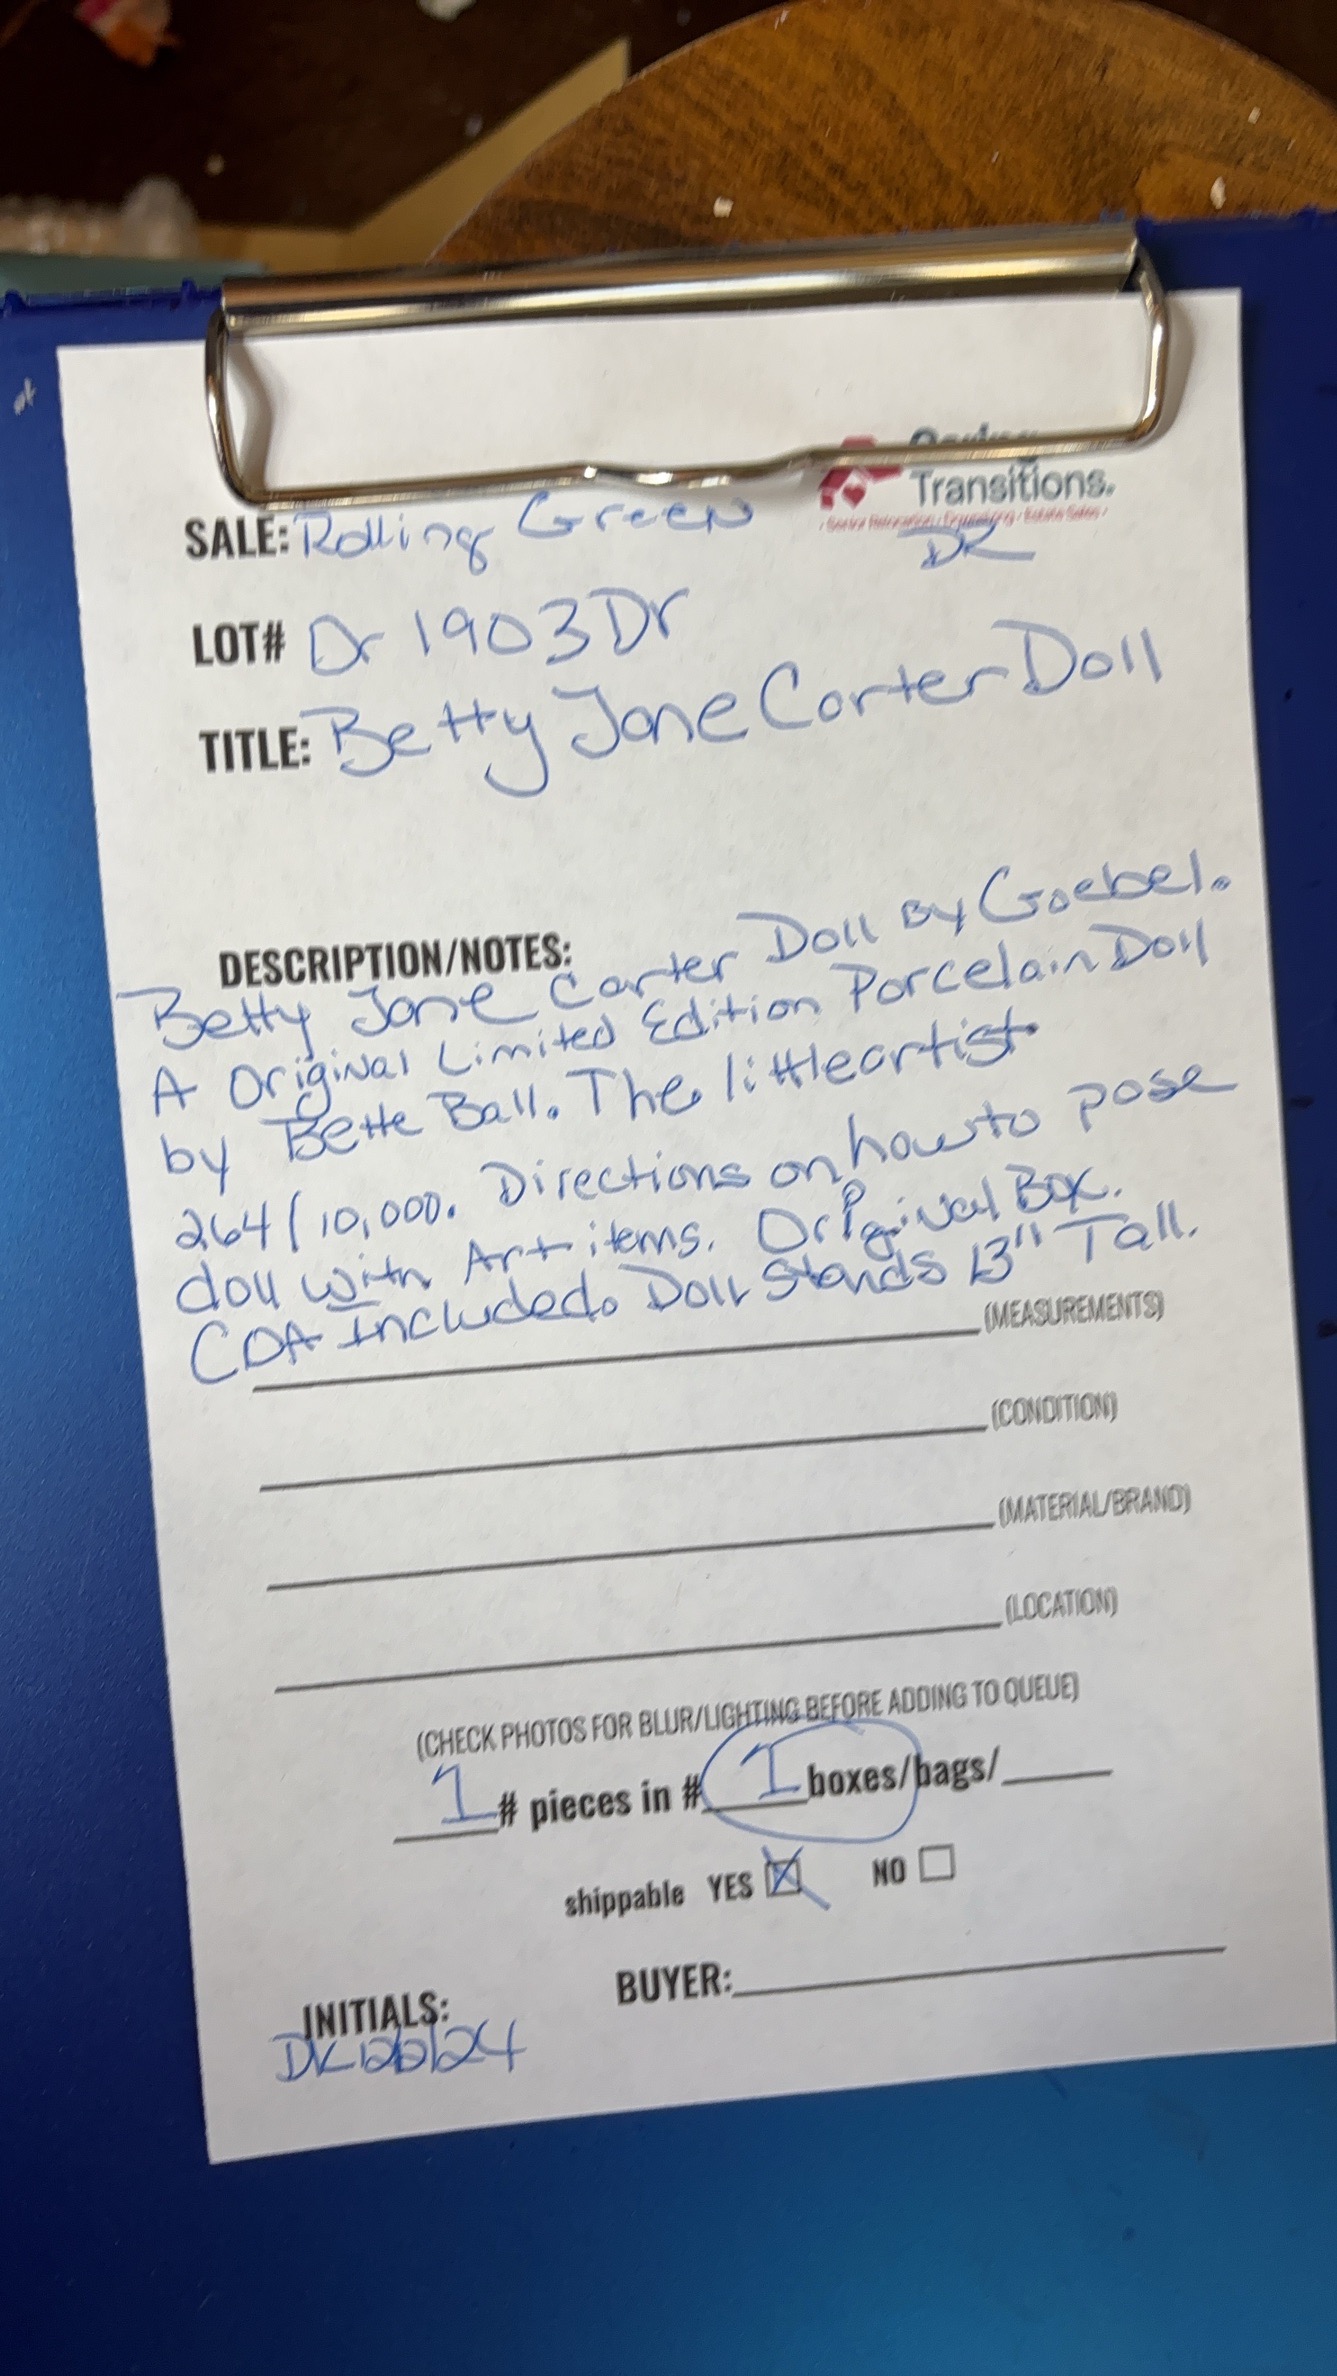 Transitions.
SALE: Rolling Green
DR
LOT# Dr 1903Dr
TITLE: Betty Jane Carter Doll
DESCRIPTION/NOTES:
Betty Jane Carter Doll By Goebel.
A Original Limited Edition Porcelain Doll
by Bette Ball. The little artist
264/10,000. Directions on how to pose
doll with Art items. Original Box.
COA Included. Doll Stands 13" Tall.
(MEASUREMENTS)
(CONDITION)
(MATERIAL/BRAND)
(LOCATION)
(CHECK PHOTOS FOR BLUR/LIGHTING BEFORE ADDING TO QUEUE)
1 # pieces in # 1 boxes/bags/
shippable YES NO
BUYER:
INITIALS: